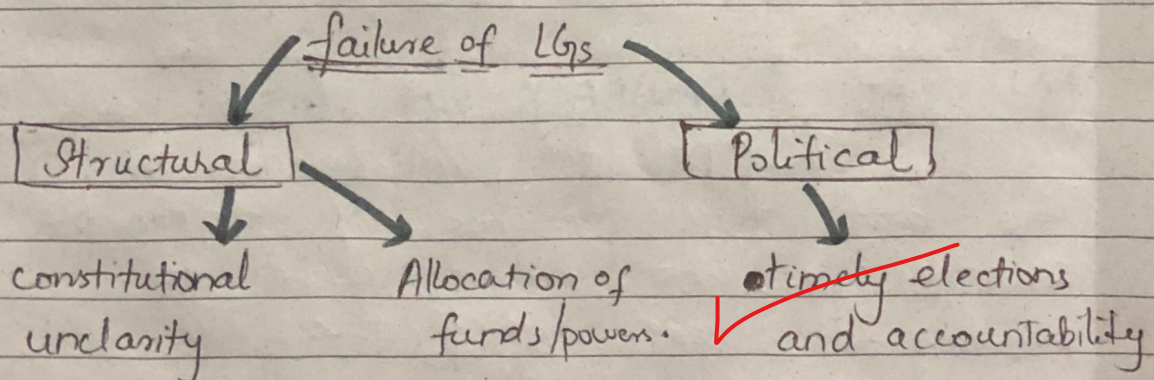 failure of LGs
Structural
Political
constitutional
unclarity
Allocation of
funds/powers.
timely elections
and accountability